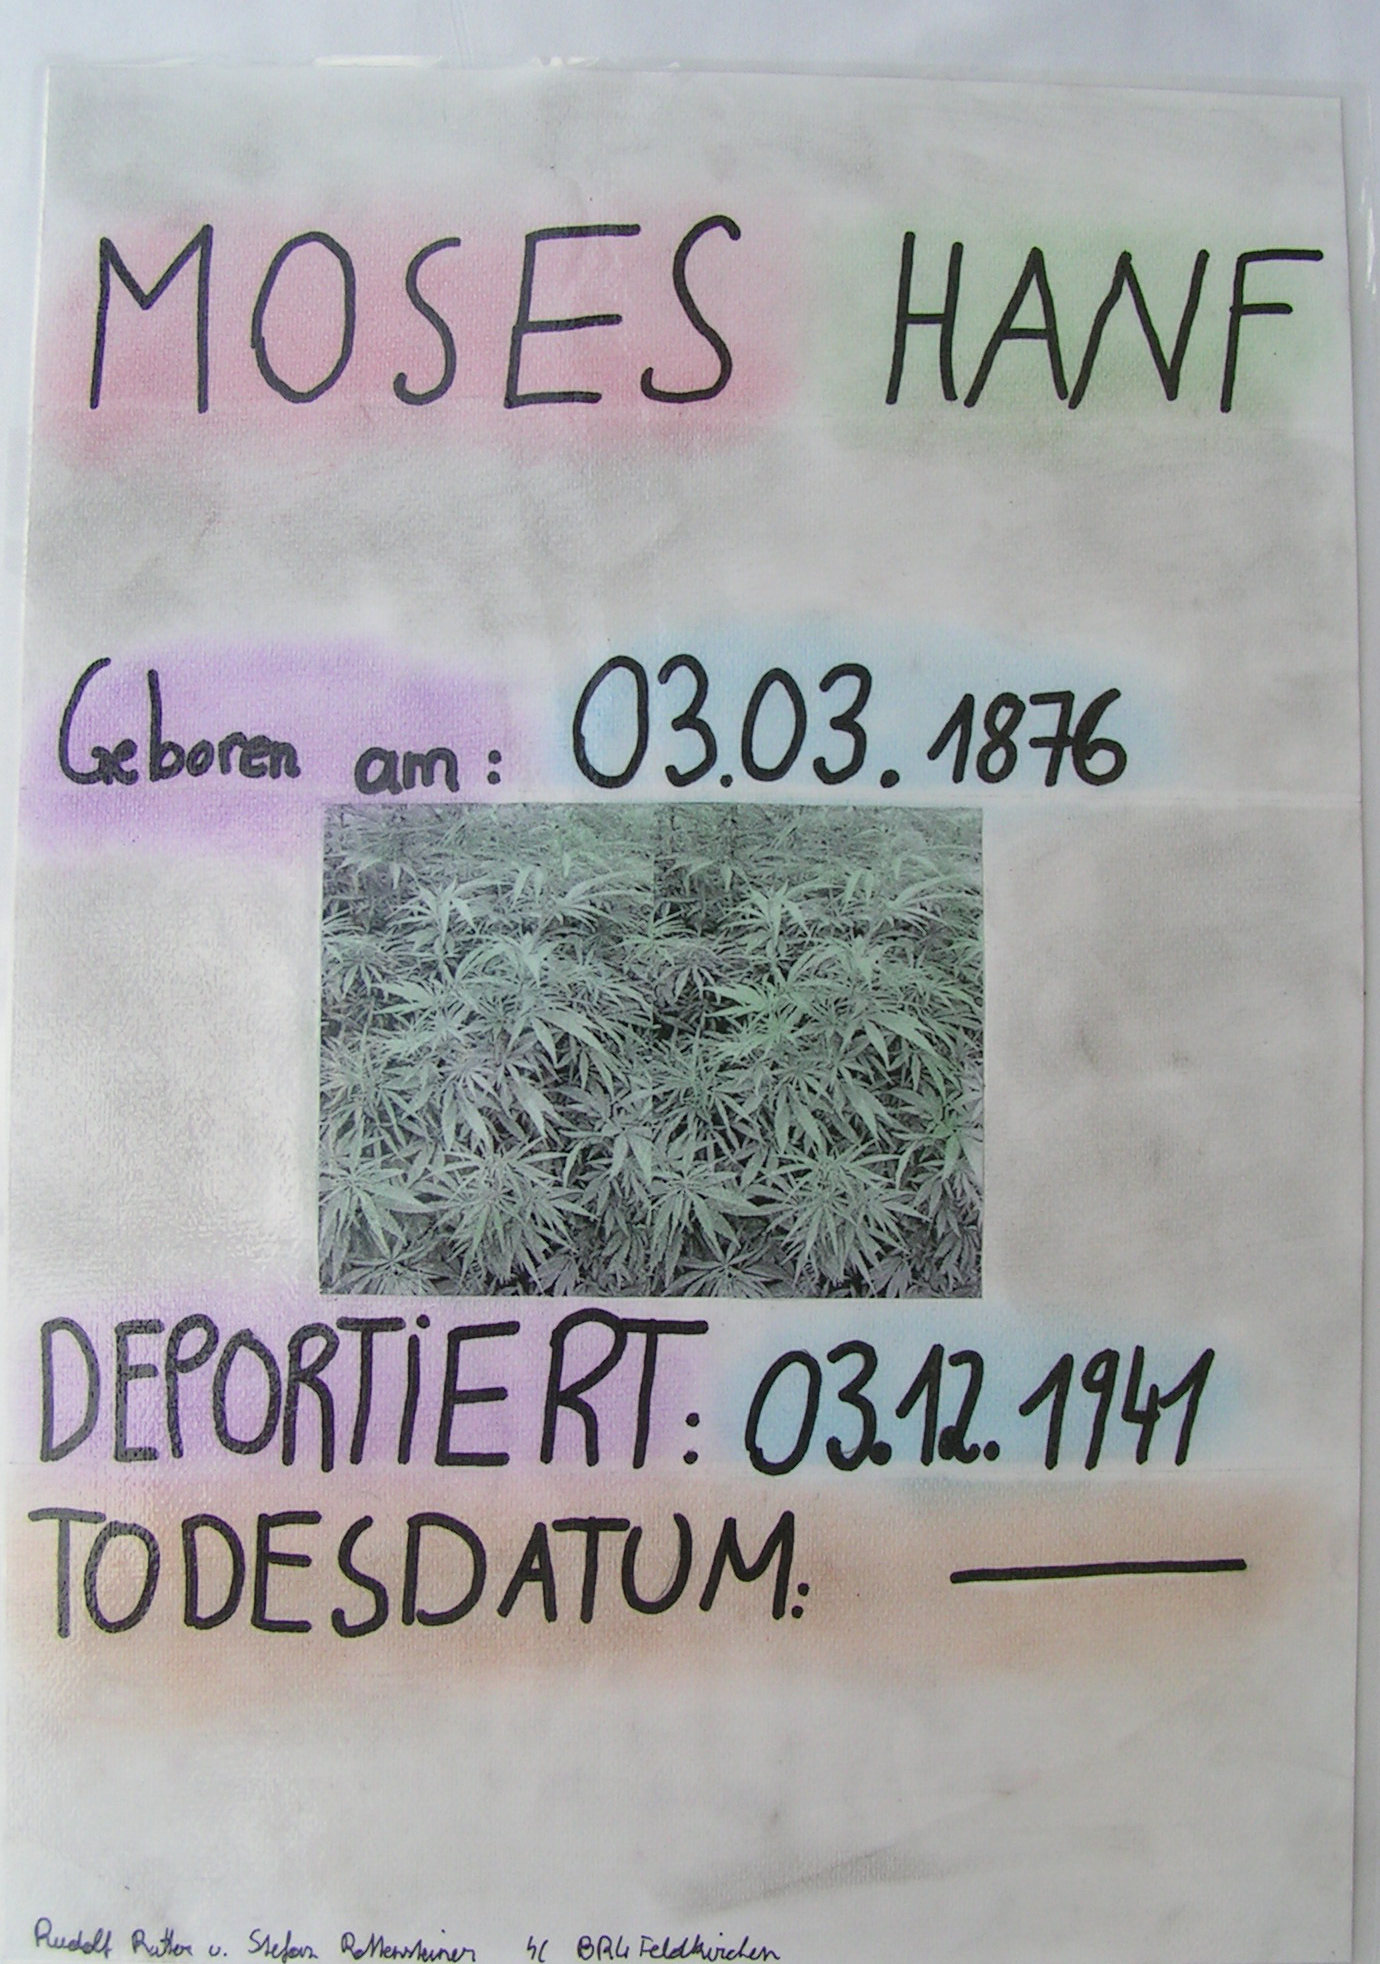 MOSES HANF
Geboren am: 03.03.1876
DEPORTIERT: 03.12.1941
TODESDATUM: —
Rudolf u. Stefan Rottensteiner 4C BRG Feldkirchen